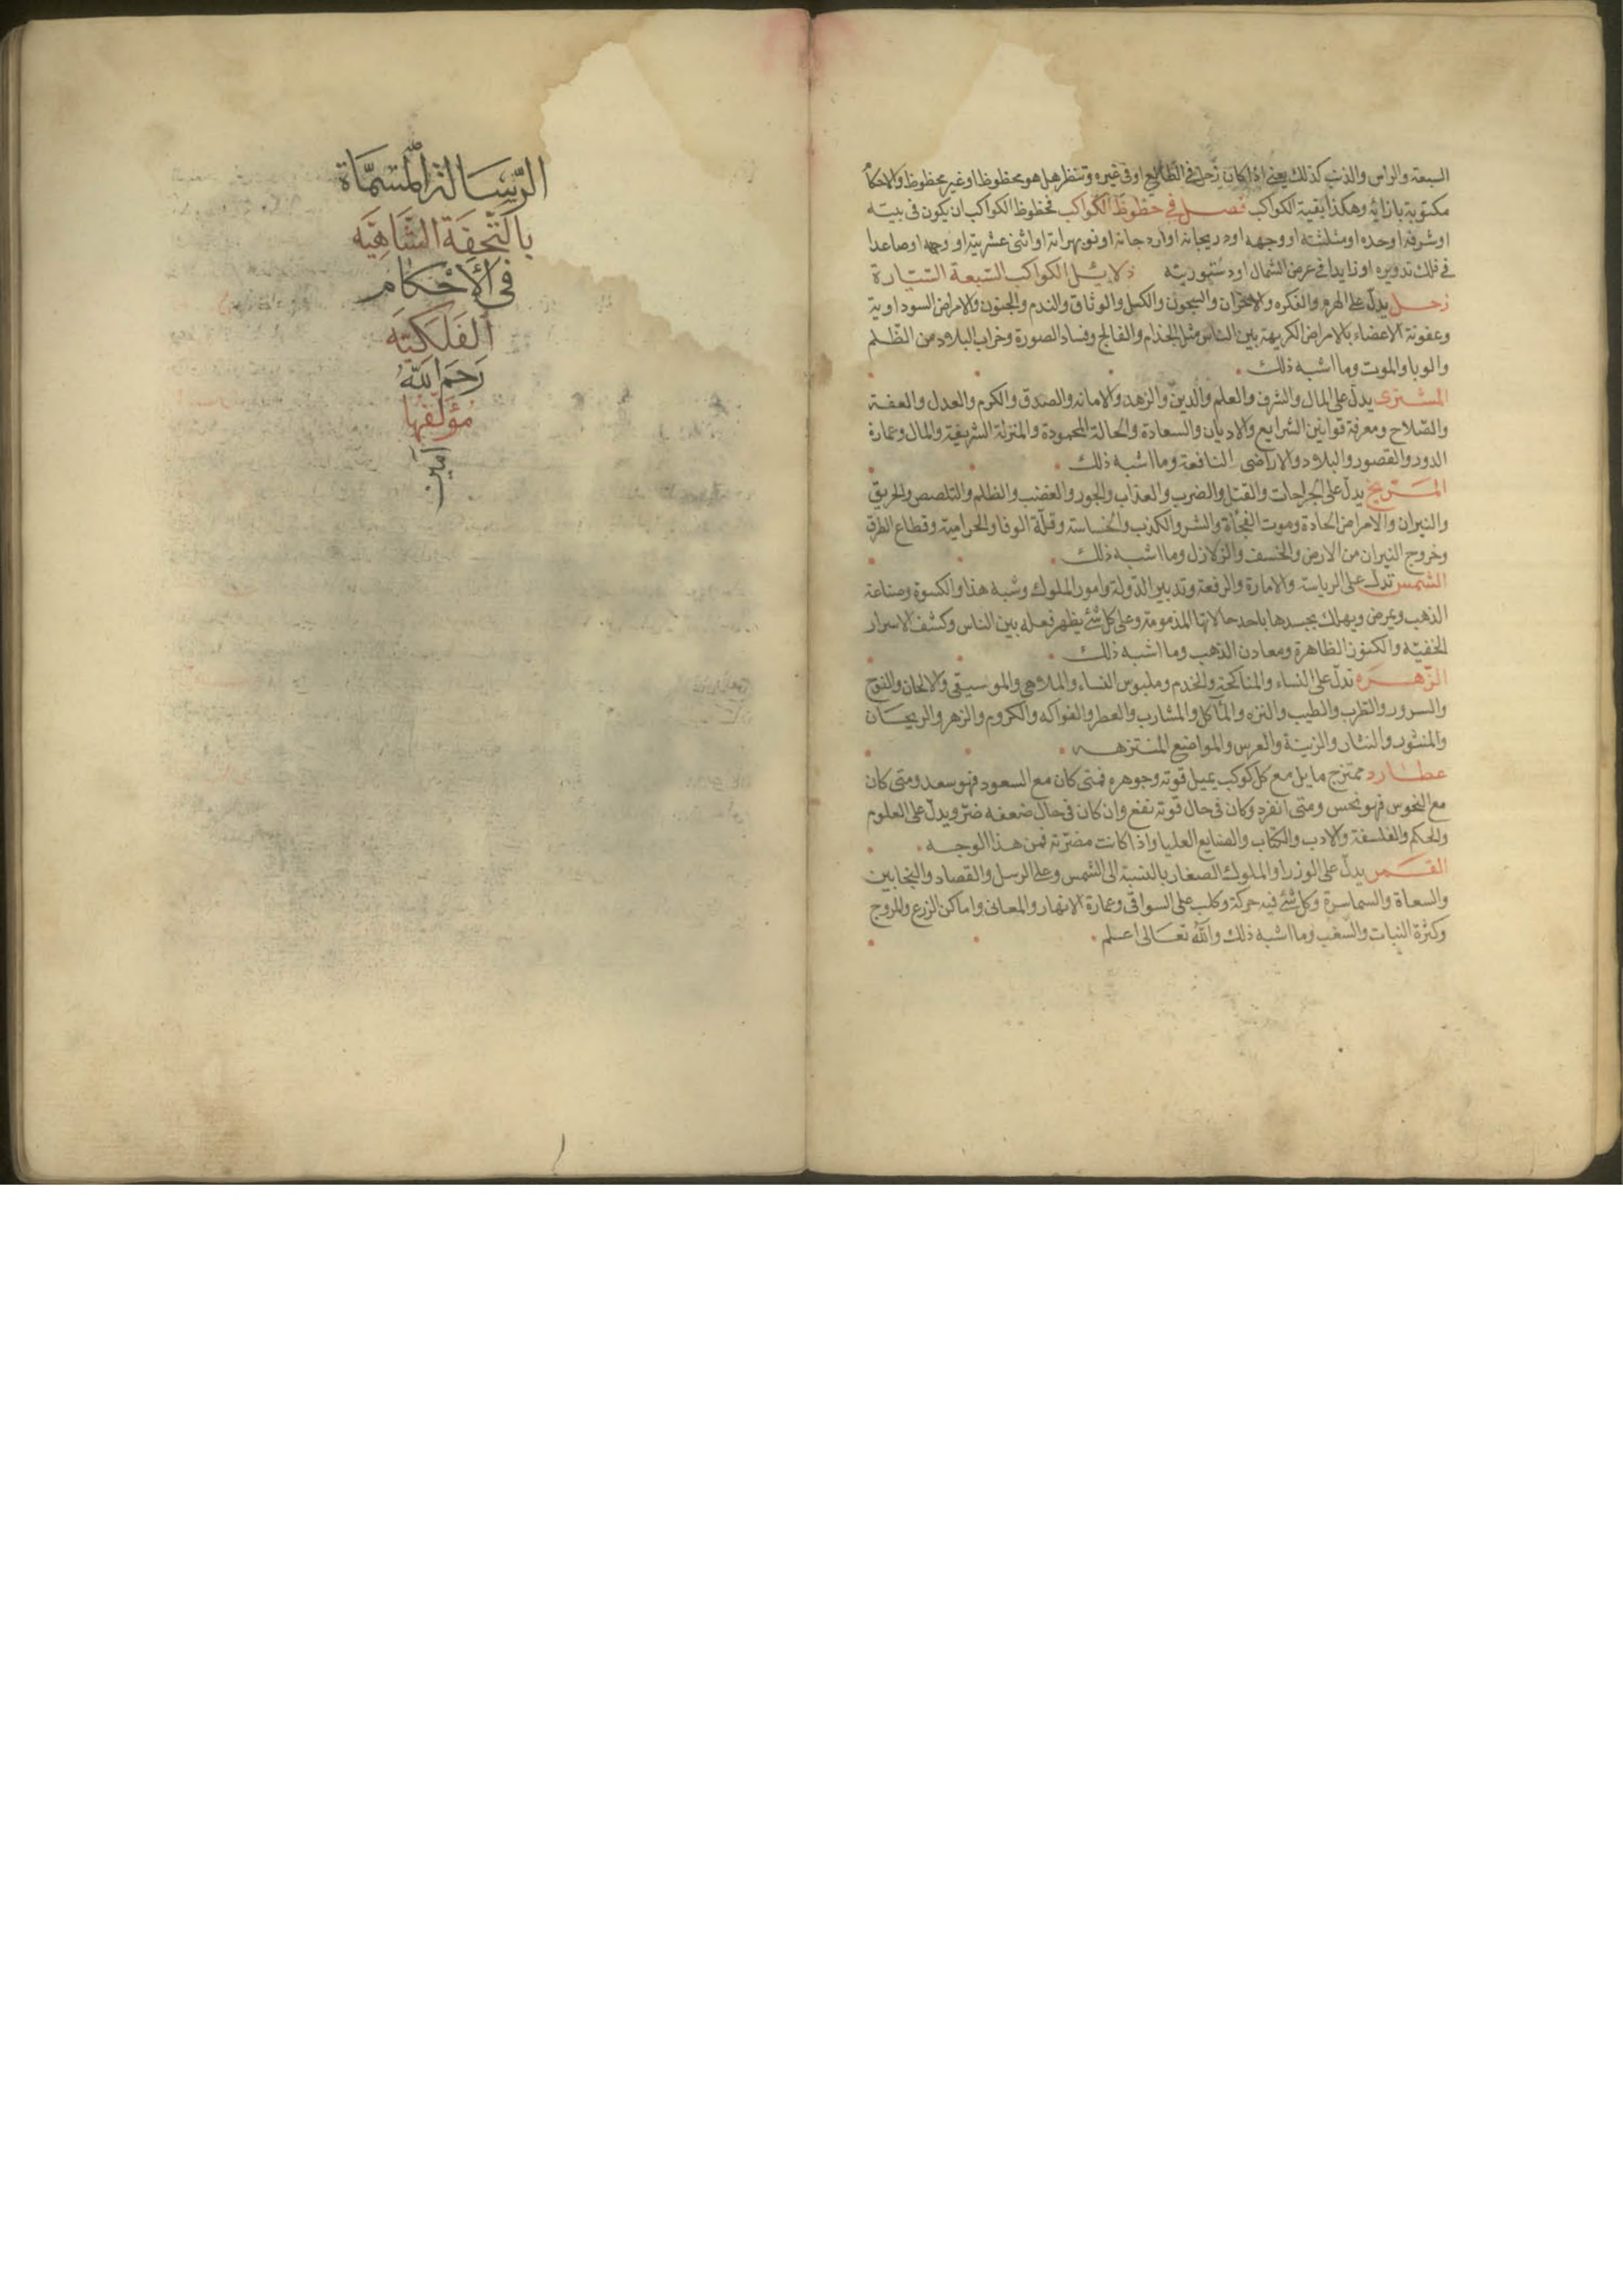 السبعة والراس والذنب كذلك يعني اذا كان زحل في الطالع او في غيره وتنظر هل هو محظوظا او غير محظوظ والاحكام
مكتوبة بازائه وهكذا بقية الكواكب فصل في حظوظ الكواكب فحظوظ الكواكب ان يكون في بيته
او شرفه او حده او مثلثته او وجهه او دريجانه او اردجانه او نوبهراته او اثنى عشريته او وجهه او صاعدا
في فلك تدويره او زايدا في عرض الشمال او دستوريته دلايل الكواكب السبعة السيارة
زحل يدل على الهرم والفكره والاحزان والسجون والكبل والوثاق والندم والجنون والامراض السوداوية
وعفونة الاعضاء بالامراض الكريهة بين الناس مثل الجذام والفالج وفساد الصورة وخراب البلاد من الظلم
والوبا والموت وما اشبه ذلك
المشترى يدل على المال والشرف والعلم والدين والزهد والامانه والصدق والكرم والعدل والعفة
والصلاح ومعرفة قوانين الشرايع والاديان والسعادة والحالة المحمودة والمنزلة الشريفة والمال وعمارة
الدور والقصور والبلاد والاراضى النافعة وما اشبه ذلك
المريخ يدل على الجراحات والقتل والضرب والعذاب والجور والغضب والظلم والتلصص والحريق
والنيران والامراض الحادة وموت الفجأة والشر والكذب والخساسة وقلة الوفا والحرامية وقطاع الطرق
وخروج النيران من الارض والخسف والزلازل وما اشبه ذلك
الشمس تدل على الرياسة والامارة والرفعة وتدبير الدولة وامور الملوك وشبه هذا والكسوة وصناعة
الذهب ويمرض ويهلك بجسدها باحد حالاتها المذمومة وعلى كل شئ يظهر فعله بين الناس وكشف الاسرار
الخفيه والكنوز الظاهرة ومعادن الذهب وما اشبه ذلك
الزهره تدل على النساء والمناكحة والخدم وملبوس النساء والملاهي والموسيقى والالحان والفرح
والسرور والطرب والطيب والنزه والمأكل والمشارب والعطر والفواكه والكروم والزهر والريحان
والمنثور والنثار والزينة والعرس والمواضع المنتزهه
عطارد ممتزج مايل مع كل كوكب يميل قوته وجوهره فمتى كان مع السعود فهو سعد ومتى كان
مع النحوس فهو نحس ومتى انفرد وكان في حال قوته نفع وان كان في حال ضعفه ضر ويدل على العلوم
والحكم والفلسفة والادب والكتاب والصنايع العليا واذا كانت مضرته فمن هذا الوجه
القمر يدل على الوزرا والملوك الصغار بالنسبة الى الشمس وعلى الرسل والقصاد والنجابين
والسعاة والسماسرة وكل شئ فيه حركة وكلب على السواقى وعمارة الانهار والمعانى واماكن الزرع والمروج
وكثرة النبات والسغب وما اشبه ذلك والله تعالى اعلم
الرسالة المسماة
بالتحفة الشاهية
في الأحكام
الفلكية
رحم الله
مؤلفها
امين